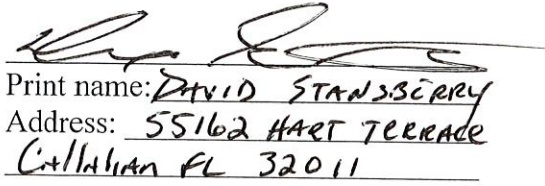 Print name: DAVID STANSBERRY
Address: 55162 HART TERRACE
CALLAHAN FL 32011